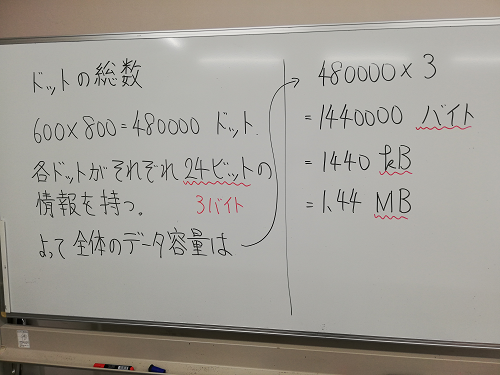 ドットの総数
600×800=480000 ドット.
各ドットがそれぞれ24ビットの
情報を持つ。 3バイト
よって全体のデータ容量は
480000×3
=1440000 バイト
=1440 kB
=1.44 MB